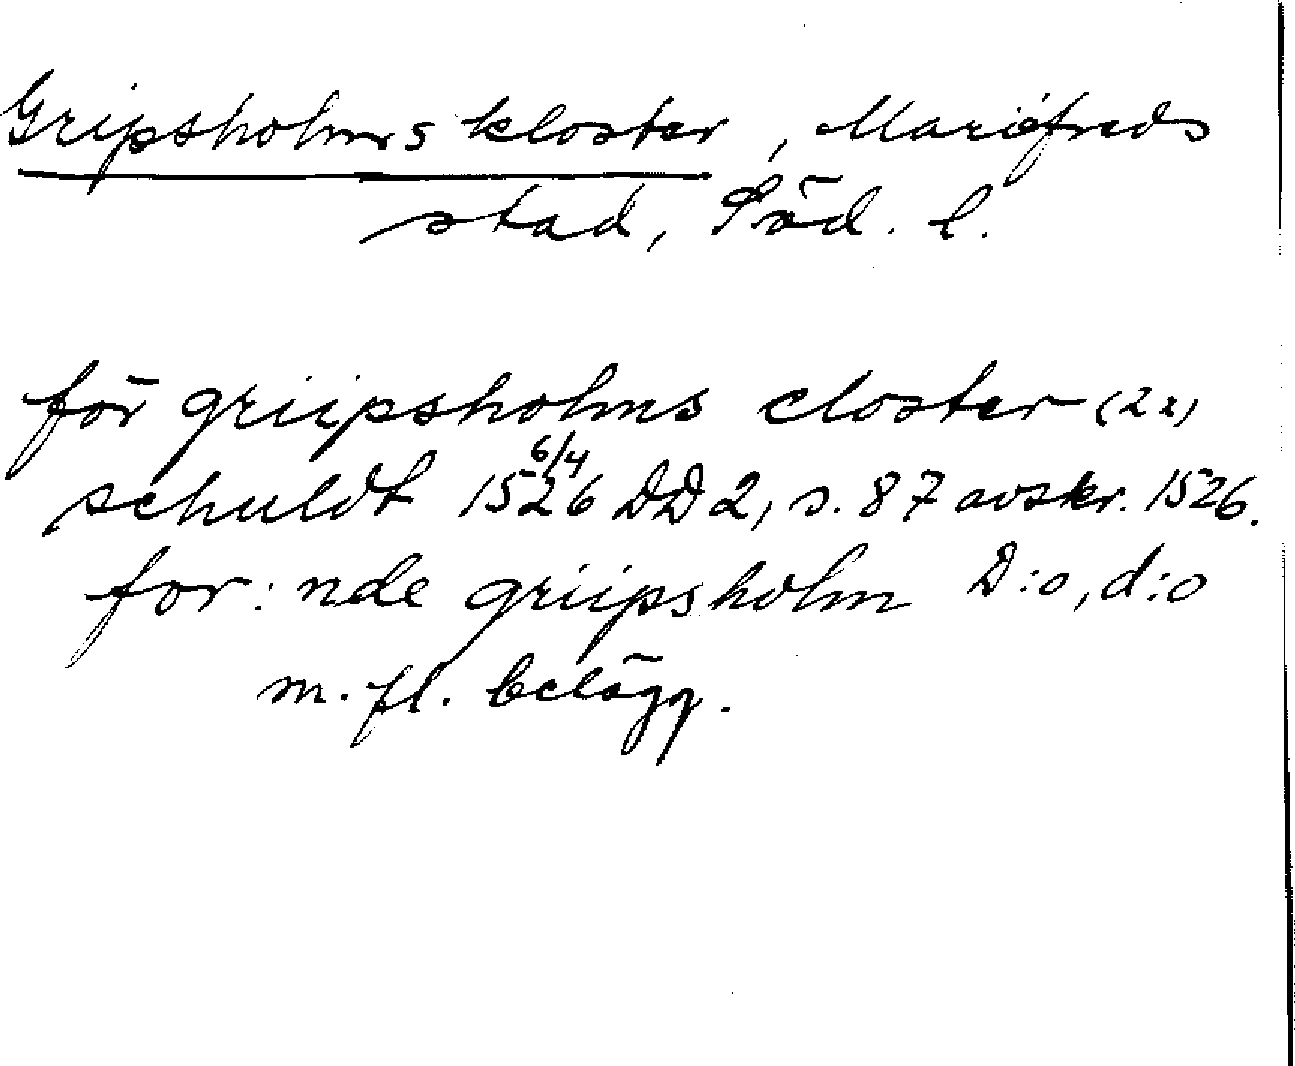 Gripsholms kloster, Mariefreds
stad, Söd. l.
för griipsholms closter (2x)
schuldt 1526 6/4 DD 2, s. 87 avskr. 1526.
for: nde griipsholm D:o, d:o
m. fl. belägg.